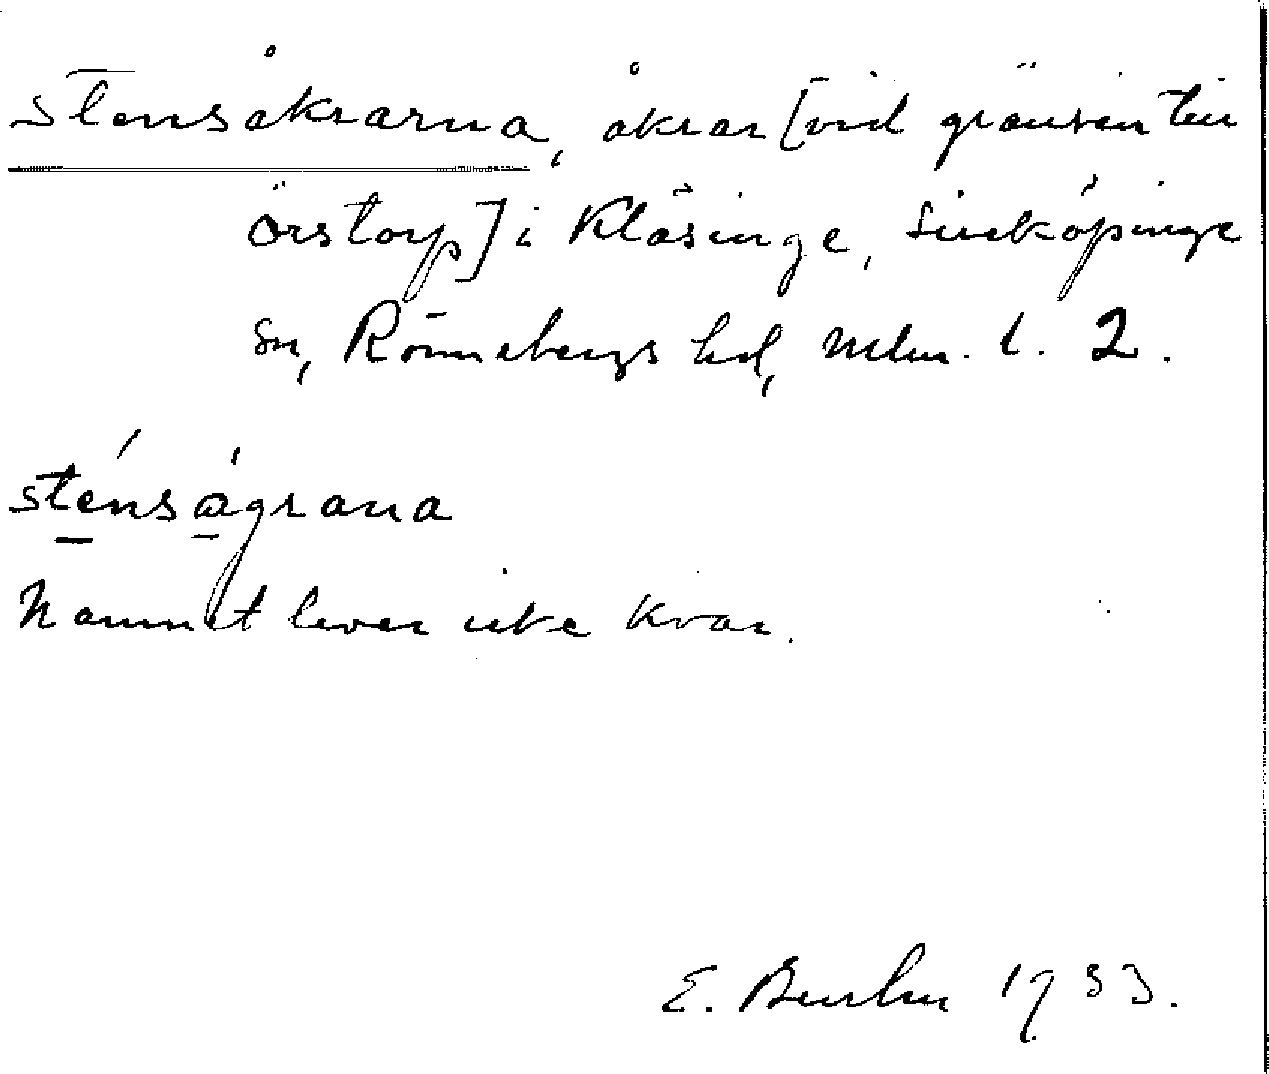 Stensåkrarna, åkrar [vid gränsen till
Örstorp] i Kläsinge, Sireköpinge
sn, Rönnebergs hd, Mlm. l. 2.
sténságrana
Namnet lever icke kvar.
E. 1933.